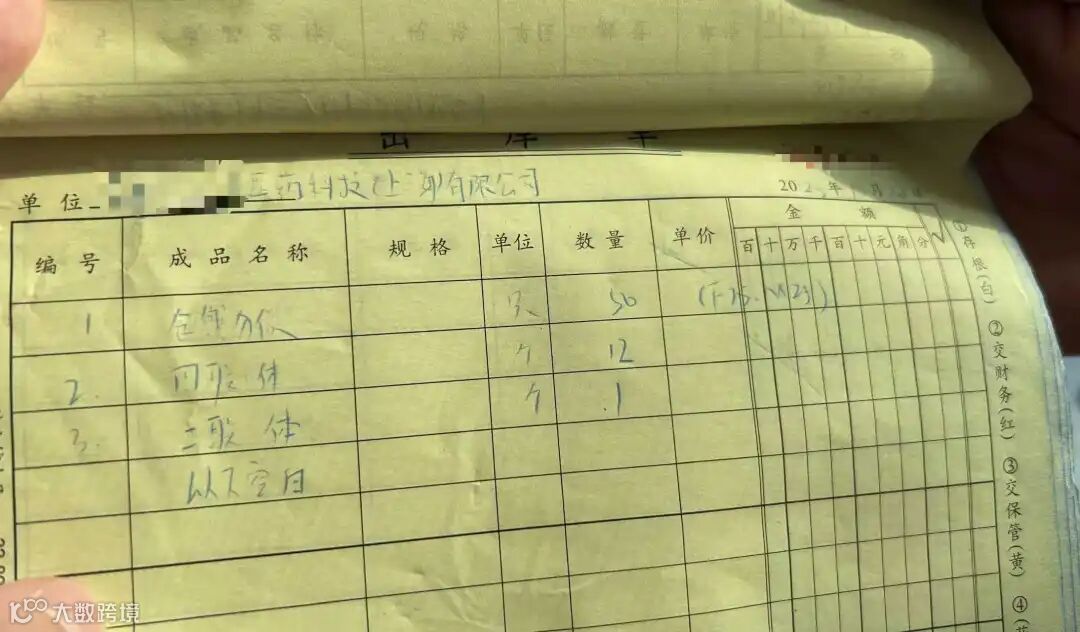 出库单
单位 医药科技(上海)有限公司 202 年 月
编号 成品名称 规格 单位 数量 单价 金额
百 十 万 千 百 十 元 角 分
1 只 50
2. 四联体 个 12
3. 三联体 个 1
以下空白
①存根(白) ②交财务(红) ③交保管(黄) ④
大数跨境